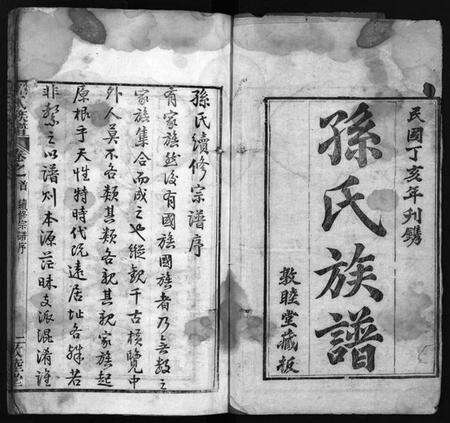 民國丁亥年刊鐫
孫氏族譜
敦睦堂藏板
孫氏續修宗譜序
有家族然後有國族國族者乃無數之
家族集合而成之也縱觀千古橫覽中
外人莫不各類其類各親其親家族起
原根乎天性特時代既遠居址各殊若
非繫之以譜則本源茫昧支派混淆誰
孫氏族譜 卷之首 續修宗譜序